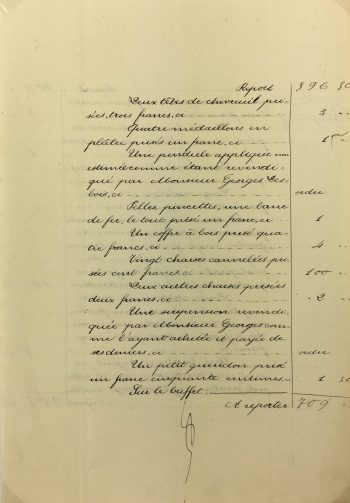 Report 596 50
Deux têtes de chevreuil pri-
sées, trois francs, ci 3 "
Quatre médaillons en
plâtre prisés un franc, ci 1 "
Une pendule applique non
estimée comme étant revendi-
quée par Monsieur Georges Des-
bois, ci ordre
Pelles pincettes, une barre
de fer, le tout prisé un franc, ci 1 "
Un coffre à bois prisé qua-
tre francs, ci 4 "
Vingt chaises cannelées pri-
sées cent francs, ci 100 "
Deux autres chaises prisées
deux francs, ci 2 "
Une suspension revendi-
quée par Monsieur Georges com-
me l'ayant achetée et payée de
ses deniers, ci ordre
Un petit guéridon prisé
un franc cinquante centimes, ci 1 50
Sur le buffet.
A reporter 709 "